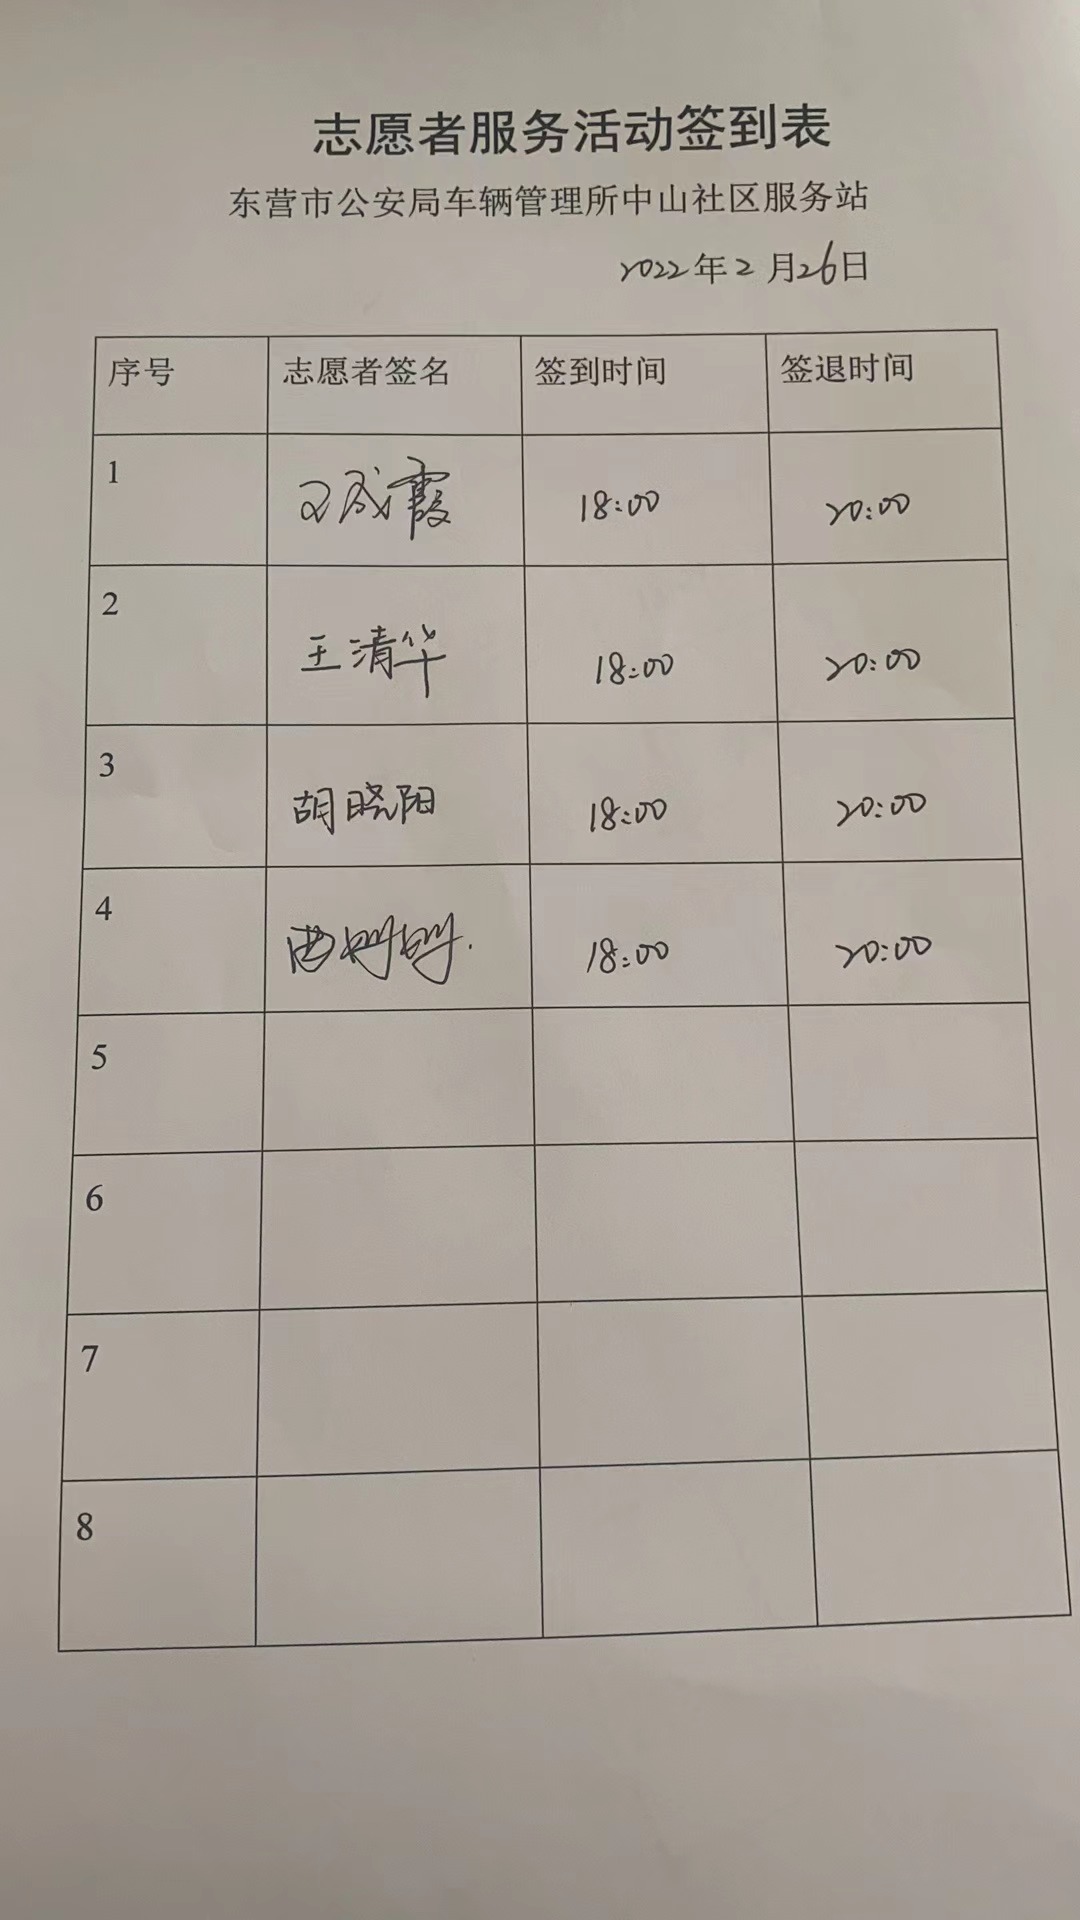 志愿者服务活动签到表
东营市公安局车辆管理所中山社区服务站
2022年2月26日
序号 志愿者签名 签到时间 签退时间
1 王成霞 18:00 20:00
2 王清华 18:00 20:00
3 胡晓阳 18:00 20:00
4 曲 18:00 20:00
5
6
7
8